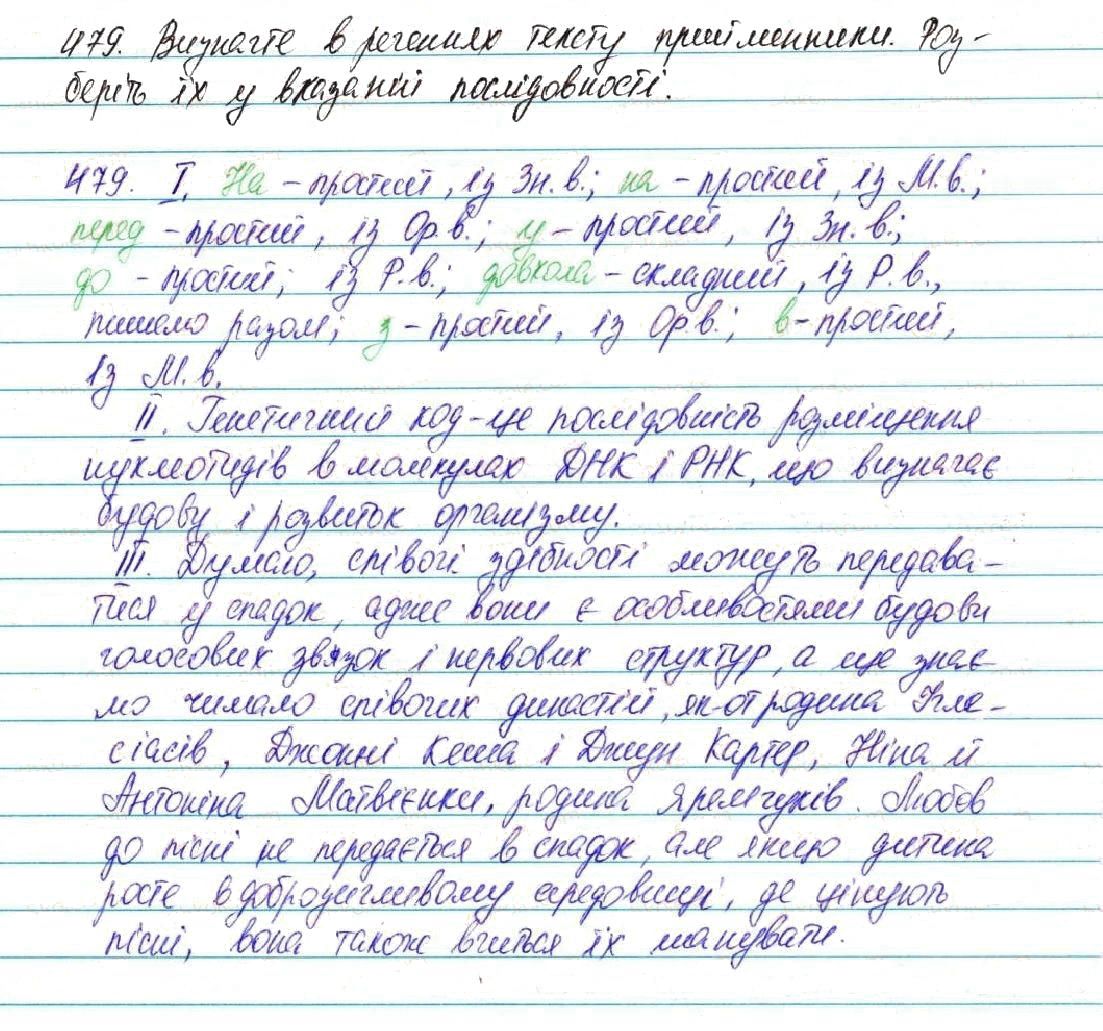 479. Визначте в реченнях тексту прийменники. Роз-
беріть їх у вказаній послідовності.
479. I. На – простий, із Зн. в.; на – простий, із М. в.;
перед – простий, із Ор. в.; у – простий, із Зн. в.;
до – простий; із Р. в.; довкола – складний, із Р. в.,
пишемо разом; з – простий, із Ор. в.; в – простий,
із М. в.
II. Генетичний код – це послідовність розміщення
нуклеотидів в молекулах ДНК і РНК, що визначає
будову і розвиток організму.
III. Думаю, співочі здібності можуть передава-
тися у спадок, адже вони є особливостями будови
голосових звязок і нервових структур, а ще знає-
мо чимало співочих династій, як-от родина Ігле-
сіасів, Джонні Кеша і Джун Картер, Ніна й
Антоніна Матвієнки, родина Яремчуків. Любов
до пісні не передається в спадок, але якщо дитина
росте в доброзичливому середовищі, де цінують
пісні, вона також вчиться їх шанувати.